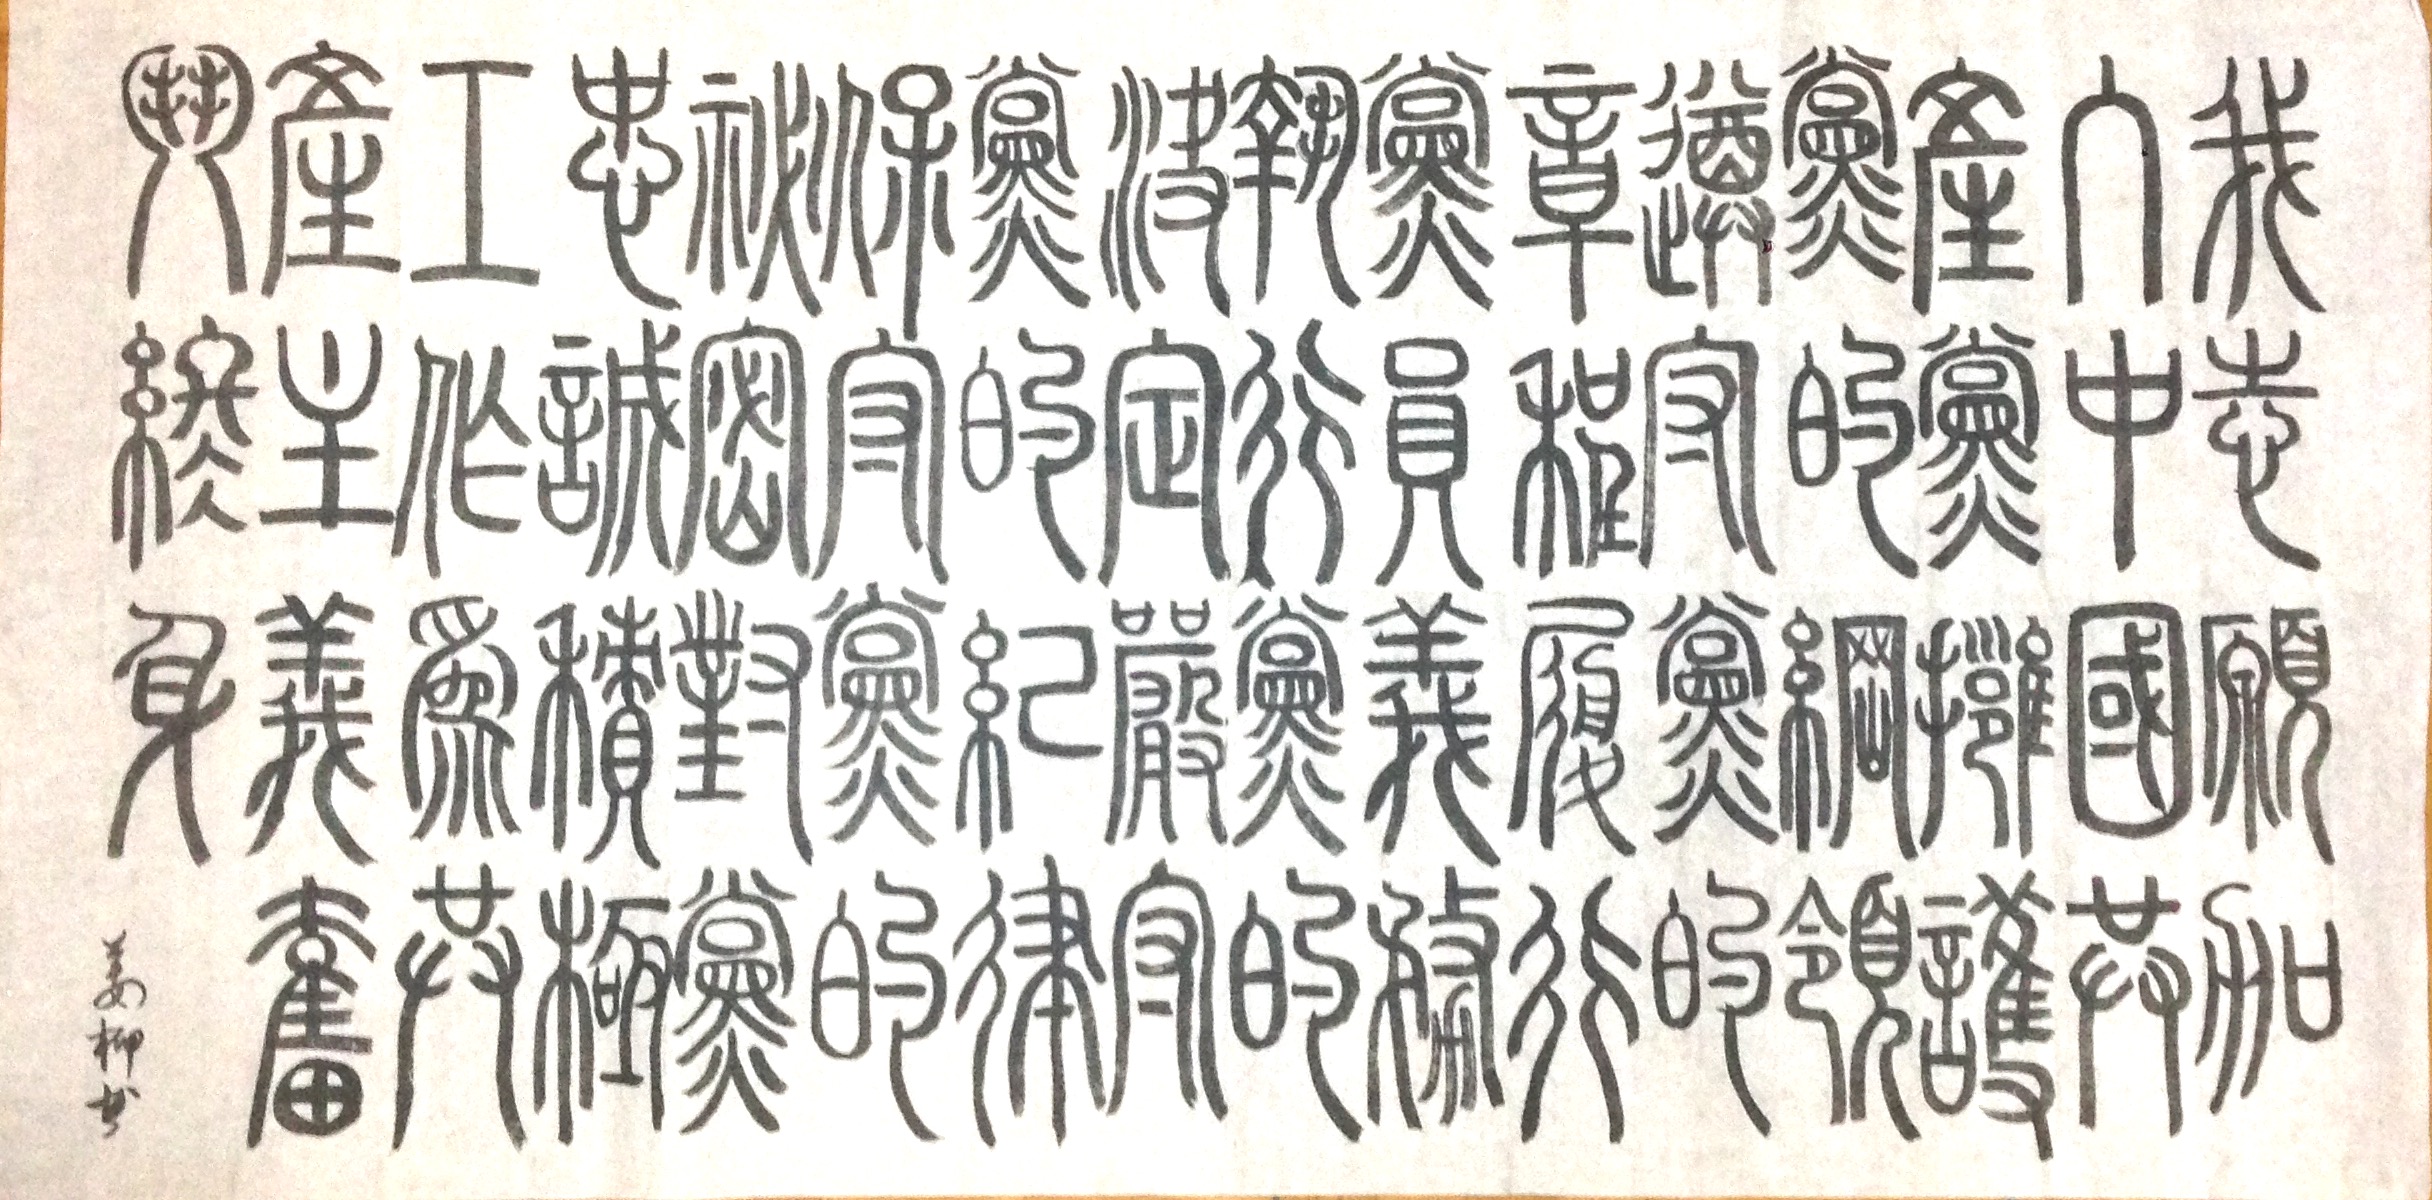 我志願加
入中國共
產黨擁護
黨的綱領
遵守黨的
章程履行
黨員義務
執行黨的
決定嚴守
黨的紀律
保守黨的
祕密對黨
忠誠積極
工作爲共
產主義奮
鬥終身
姜柳书